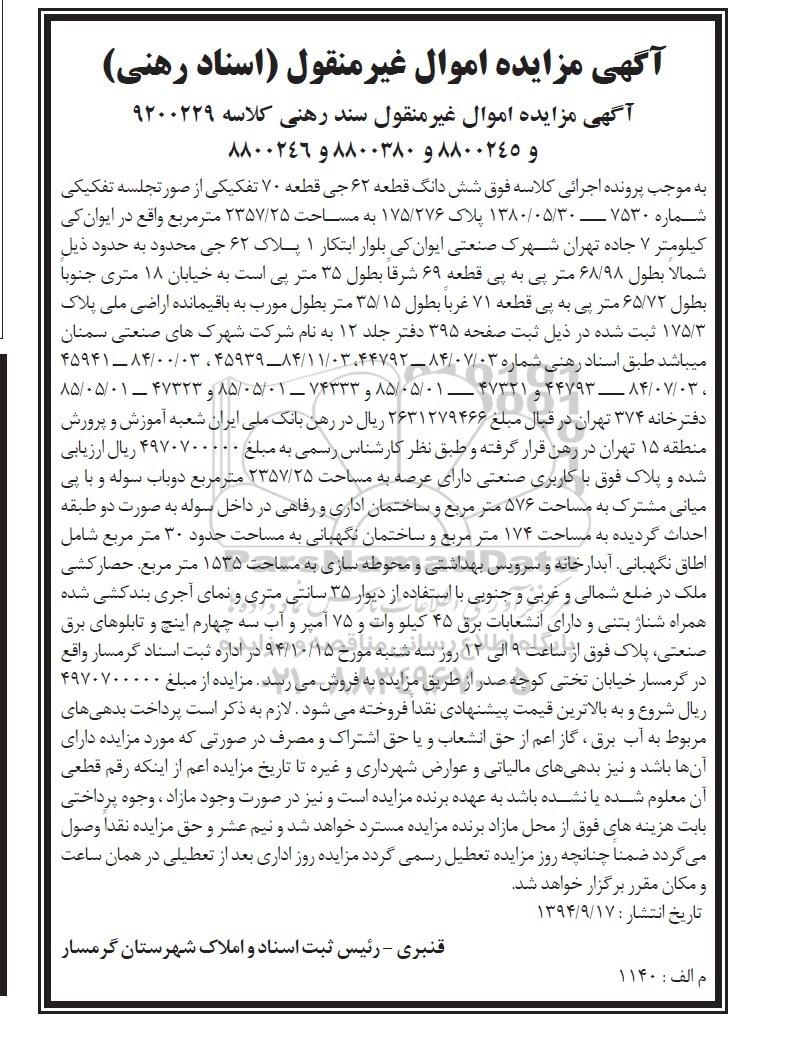 آگهی مزایده اموال غیرمنقول (اسناد رهنی)
آگهی مزایده اموال غیرمنقول سند رهنی کلاسه ۹۲۰۰۲۲۹
و ۸۸۰۰۲۴۵ و ۸۸۰۰۳۸۰ و ۸۸۰۰۲۴۶
به موجب پرونده اجرائی کلاسه فوق شش دانگ قطعه ۶۲ جی قطعه ۷۰ تفکیکی از صورتجلسه تفکیکی
شماره ۷۵۳۰ ـــ ۱۳۸۰/۰۵/۳۰ پلاک ۱۷۵/۲۷۶ به مساحت ۲۳۵۷/۲۵ مترمربع واقع در ایوان کی
کیلومتر ۷ جاده تهران شهرک صنعتی ایوان کی بلوار ابتکار ۱ پلاک ۶۲ جی محدود به حدود ذیل
شمالاً بطول ۶۸/۹۸ متر پی به پی قطعه ۶۹ شرقاً بطول ۳۵ متر پی است به خیابان ۱۸ متری جنوبا
بطول ۶۵/۷۲ متر پی به پی قطعه ۷۱ غرباً بطول ۳۵/۱۵ متر بطول مورب به باقیمانده اراضی ملی پلاک
۱۷۵/۳ ثبت شده در ذیل ثبت صفحه ۳۹۵ دفتر جلد ۱۲ به نام شرکت شهرک های صنعتی سمنان
میباشد طبق اسناد رهنی شماره ۸۴/۰۷/۰۳ ـــ ۴۴۷۹۲، ۸۴/۱۱/۰۳ ـــ ۴۵۹۳۹ ، ۸۴/۰۰/۰۳ ـــ ۴۵۹۴۱
، ۸۴/۰۷/۰۳ ـــ ۴۴۷۹۳ و ۴۷۳۲۱ ـــ ۸۵/۰۵/۰۱ و ۷۴۳۳۳ ـــ ۸۵/۰۵/۰۱ و ۴۷۳۲۳ ـــ ۸۵/۰۵/۰۱
دفترخانه ۳۷۴ تهران در قبال مبلغ ۲۶۳۱۲۷۹۴۶۶ ریال در رهن بانک ملی ایران شعبه آموزش و پرورش
منطقه ۱۵ تهران در رهن قرار گرفته و طبق نظر کارشناس رسمی به مبلغ ۴۹۷۰۷۰۰۰۰۰ ریال ارزیابی
شده و پلاک فوق با کاربری صنعتی دارای عرصه به مساحت ۲۳۵۷/۲۵ مترمربع دوباب سوله و با پی
میانی مشترک به مساحت ۵۷۶ متر مربع و ساختمان اداری و رفاهی در داخل سوله به صورت دو طبقه
احداث گردیده به مساحت ۱۷۴ متر مربع و ساختمان نگهبانی به مساحت حدود ۳۰ متر مربع شامل
اطاق نگهبانی. آبدارخانه و سرویس بهداشتی و محوطه سازی به مساحت ۱۵۳۵ متر مربع. حصارکشی
ملک در ضلع شمالی و غربی و جنوبی با استفاده از دیوار ۳۵ سانتی متری و نمای آجری بندکشی شده
همراه شناژ بتنی و دارای انشعابات برق ۴۵ کیلو وات و ۷۵ آمپر و آب سه چهارم اینچ و تابلوهای برق
صنعتی، پلاک فوق از ساعت ۹ الی ۱۲ روز سه شنبه مورخ ۹۴/۱۰/۱۵ در اداره ثبت اسناد گرمسار واقع
در گرمسار خیابان تختی کوچه صدر از طریق مزایده به فروش می رسد. مزایده از مبلغ ۴۹۷۰۷۰۰۰۰۰
ریال شروع و به بالاترین قیمت پیشنهادی نقداً فروخته می شود . لازم به ذکر است پرداخت بدهی‌های
مربوط به آب برق ، گاز اعم از حق انشعاب و یا حق اشتراک و مصرف در صورتی که مورد مزایده دارای
آن‌ها باشد و نیز بدهی‌های مالیاتی و عوارض شهرداری و غیره تا تاریخ مزایده اعم از اینکه رقم قطعی
آن معلوم شده یا نشده باشد به عهده برنده مزایده است و نیز در صورت وجود مازاد ، وجوه پرداختی
بابت هزینه های فوق از محل مازاد برنده مزایده مسترد خواهد شد و نیم عشر و حق مزایده نقداً وصول
می‌گردد ضمناً چنانچه روز مزایده تعطیل رسمی گردد مزایده روز اداری بعد از تعطیلی در همان ساعت
و مکان مقرر برگزار خواهد شد.
تاریخ انتشار : ۱۳۹۴/۹/۱۷
قنبری – رئیس ثبت اسناد و املاک شهرستان گرمسار
م الف : ۱۱۴۰
ParsNamadData
پایگاه اطلاع رسانی مناقصه و مزایده
۰۲۱-۸۸۳۴۹۶۷۰-۵